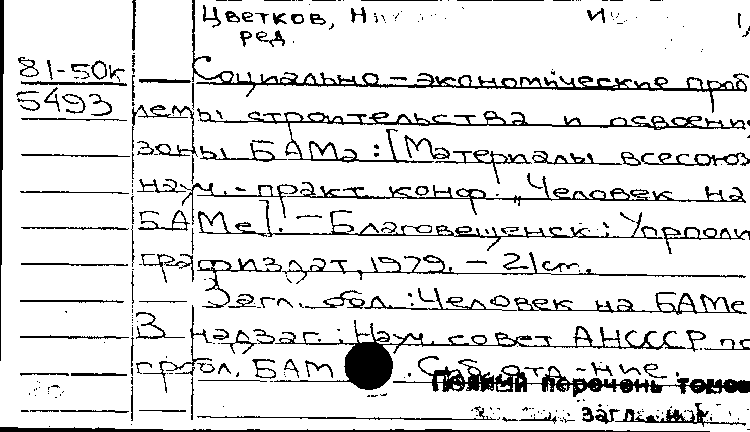 Цветков,
ред.
81-50к Социально-экономические проб
5493 лемы строительства и освоения
зоны БАМа: [Материалы всесоюз
науч.-практ конф. „Человек на
БАМе]. — Благовещенск: Упрполи
графиздат, 1979. — 21 см.
Загл. обл.: Человек на БАМе
В надзаг.: Науч. совет АН СССР по
пробл. БАМ. Сиб. отд-ние.
Полный перечень томов
загл.